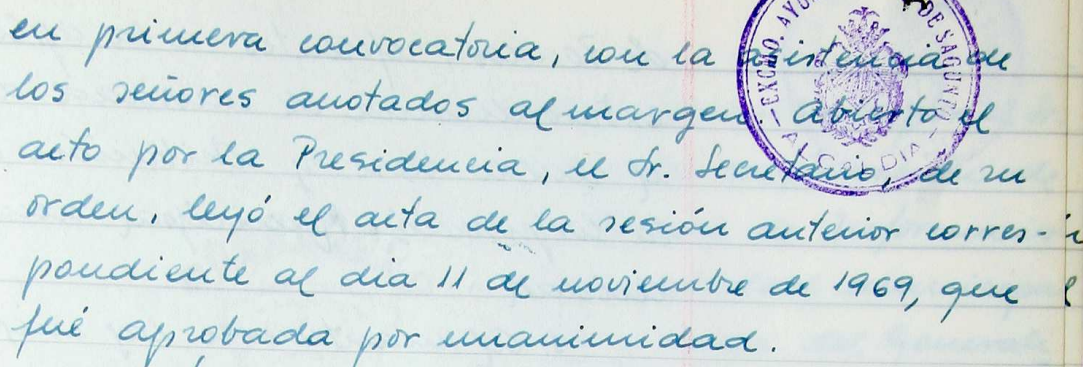 en primera convocatoria, con la asistencia de
los señores anotados al margen. Abierto el
acto por la Presidencia, el Sr. Secretario, de su
orden, leyó el acta de la sesión anterior corres-
pondiente al dia 11 de noviembre de 1969, que
fué aprobada por unanimidad.
EXCMO. AYU DE SAGUNTO
ALCALDIA